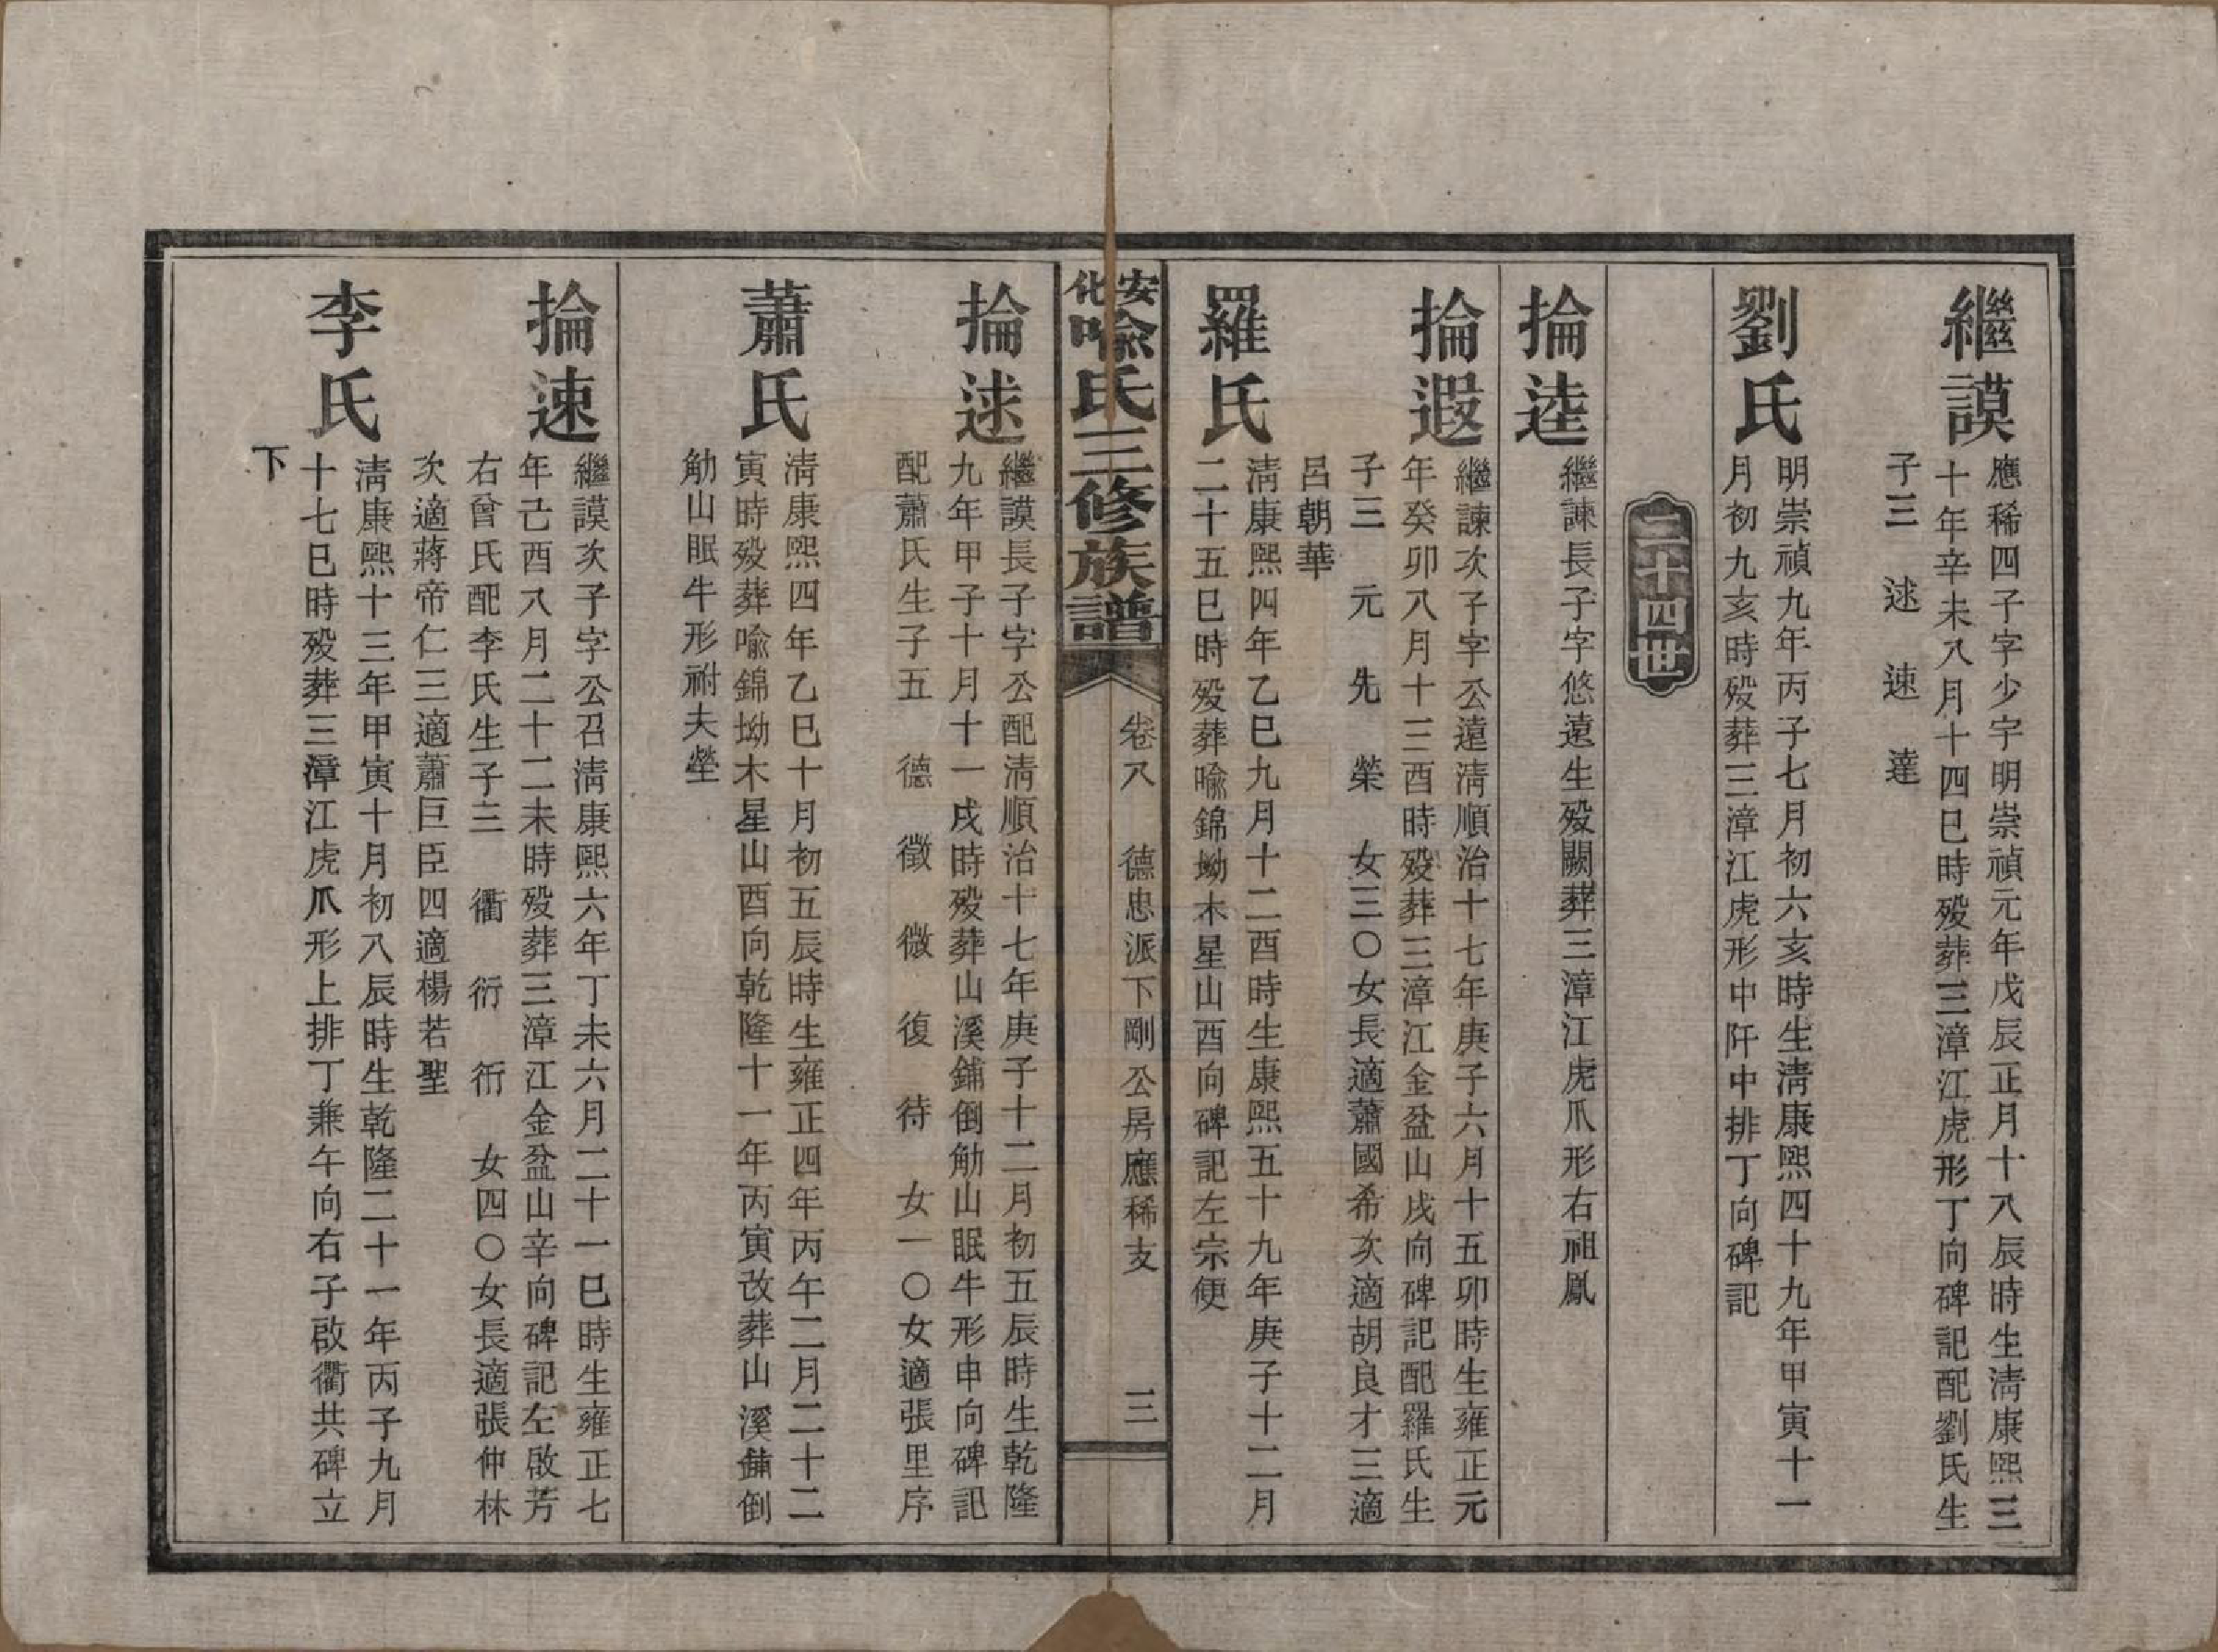 繼謨
應稀四子字少宇明崇禎元年戊辰正月十八辰時生淸康熙三
十年辛未八月十四巳時歿葬三漳江虎形丁向碑記配劉氏生
子三　逑　速　達
劉氏
明崇禎九年丙子七月初六亥時生淸康熙四十九年甲寅十一
月初九亥時歿葬三漳江虎形中阡中排丁向碑記
二十四世
掄逵
繼諫長子字悠遠生歿闕葬三漳江虎爪形右祖鳳
掄遐
繼諫次子字公遠淸順治十七年庚子六月十五卯時生雍正元
年癸卯八月十三酉時歿葬三漳江金盆山戌向碑記配羅氏生
子三　元　先　榮　女三〇女長適蕭國希次適胡良才三適
呂朝華
羅氏
淸康熙四年乙巳九月十二酉時生康熙五十九年庚子十二月
二十五巳時歿葬喩錦坳木星山酉向碑記左宗便
安化喩氏三修族譜　卷八　德忠派下剛公房應稀支　三
掄逑
繼謨長子字公配淸順治十七年庚子十二月初五辰時生乾隆
九年甲子十月十一戌時歿葬山溪鋪倒觔山眠牛形申向碑記
配蕭氏生子五　德　徵　微　復　待　女一〇女適張里序
蕭氏
淸康熙四年乙巳十月初五辰時生雍正四年丙午二月二十二
寅時歿葬喩錦坳木星山酉向乾隆十一年丙寅改葬山溪鋪倒
觔山眠牛形祔夫塋
掄速
繼謨次子字公召淸康熙六年丁未六月二十一巳時生雍正七
年己酉八月二十二未時歿葬三漳江金盆山辛向碑記左啟芳
右曾氏配李氏生子三　衢　衍　衎　女四〇女長適張仲林
次適蔣帝仁三適蕭巨臣四適楊若聖
李氏
淸康熙十三年甲寅十月初八辰時生乾隆二十一年丙子九月
十七巳時歿葬三漳江虎爪形上排丁兼午向右子啟衢共碑立
下